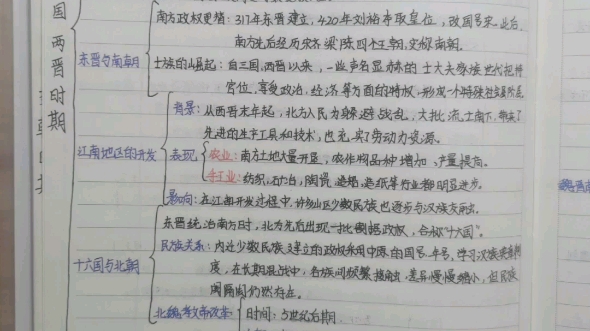 国两晋时期
东晋与南朝
南方政权更替：317年东晋建立，420年刘裕夺取皇位，改国号宋。此后
南方先后经历宋齐梁陈四个王朝，史称南朝。
士族的崛起：自三国、西晋以来，一些声名显赫的士大夫家族世代把持
官位，享受政治、经济等方面的特权，形成一个特殊社会阶层
江南地区的开发
背景：从西晋末年起，北方人民为躲避战乱，大批流亡南下，带来了
先进的生产工具和技术，也充实了劳动力资源。
表现
农业：南方土地大量开垦，农作物品种增加，产量提高。
手工业：纺织、冶、陶瓷、造船、造纸等行业都明显进步。
影响：在江南开发过程中，许多山区少数民族也逐步与汉族交融。
十六国与北朝
东晋统治南方时，北方先后出现一批割据政权，合称“十六国”。
民族关系：内迁少数民族建立的政权采用中原的国号、年号，学习汉族典章制
度，在长期混战中，各族间频繁接触，差异慢慢缩小，但民族
间隔阂仍然存在。
北魏孝文帝改革
时间：5世纪后期